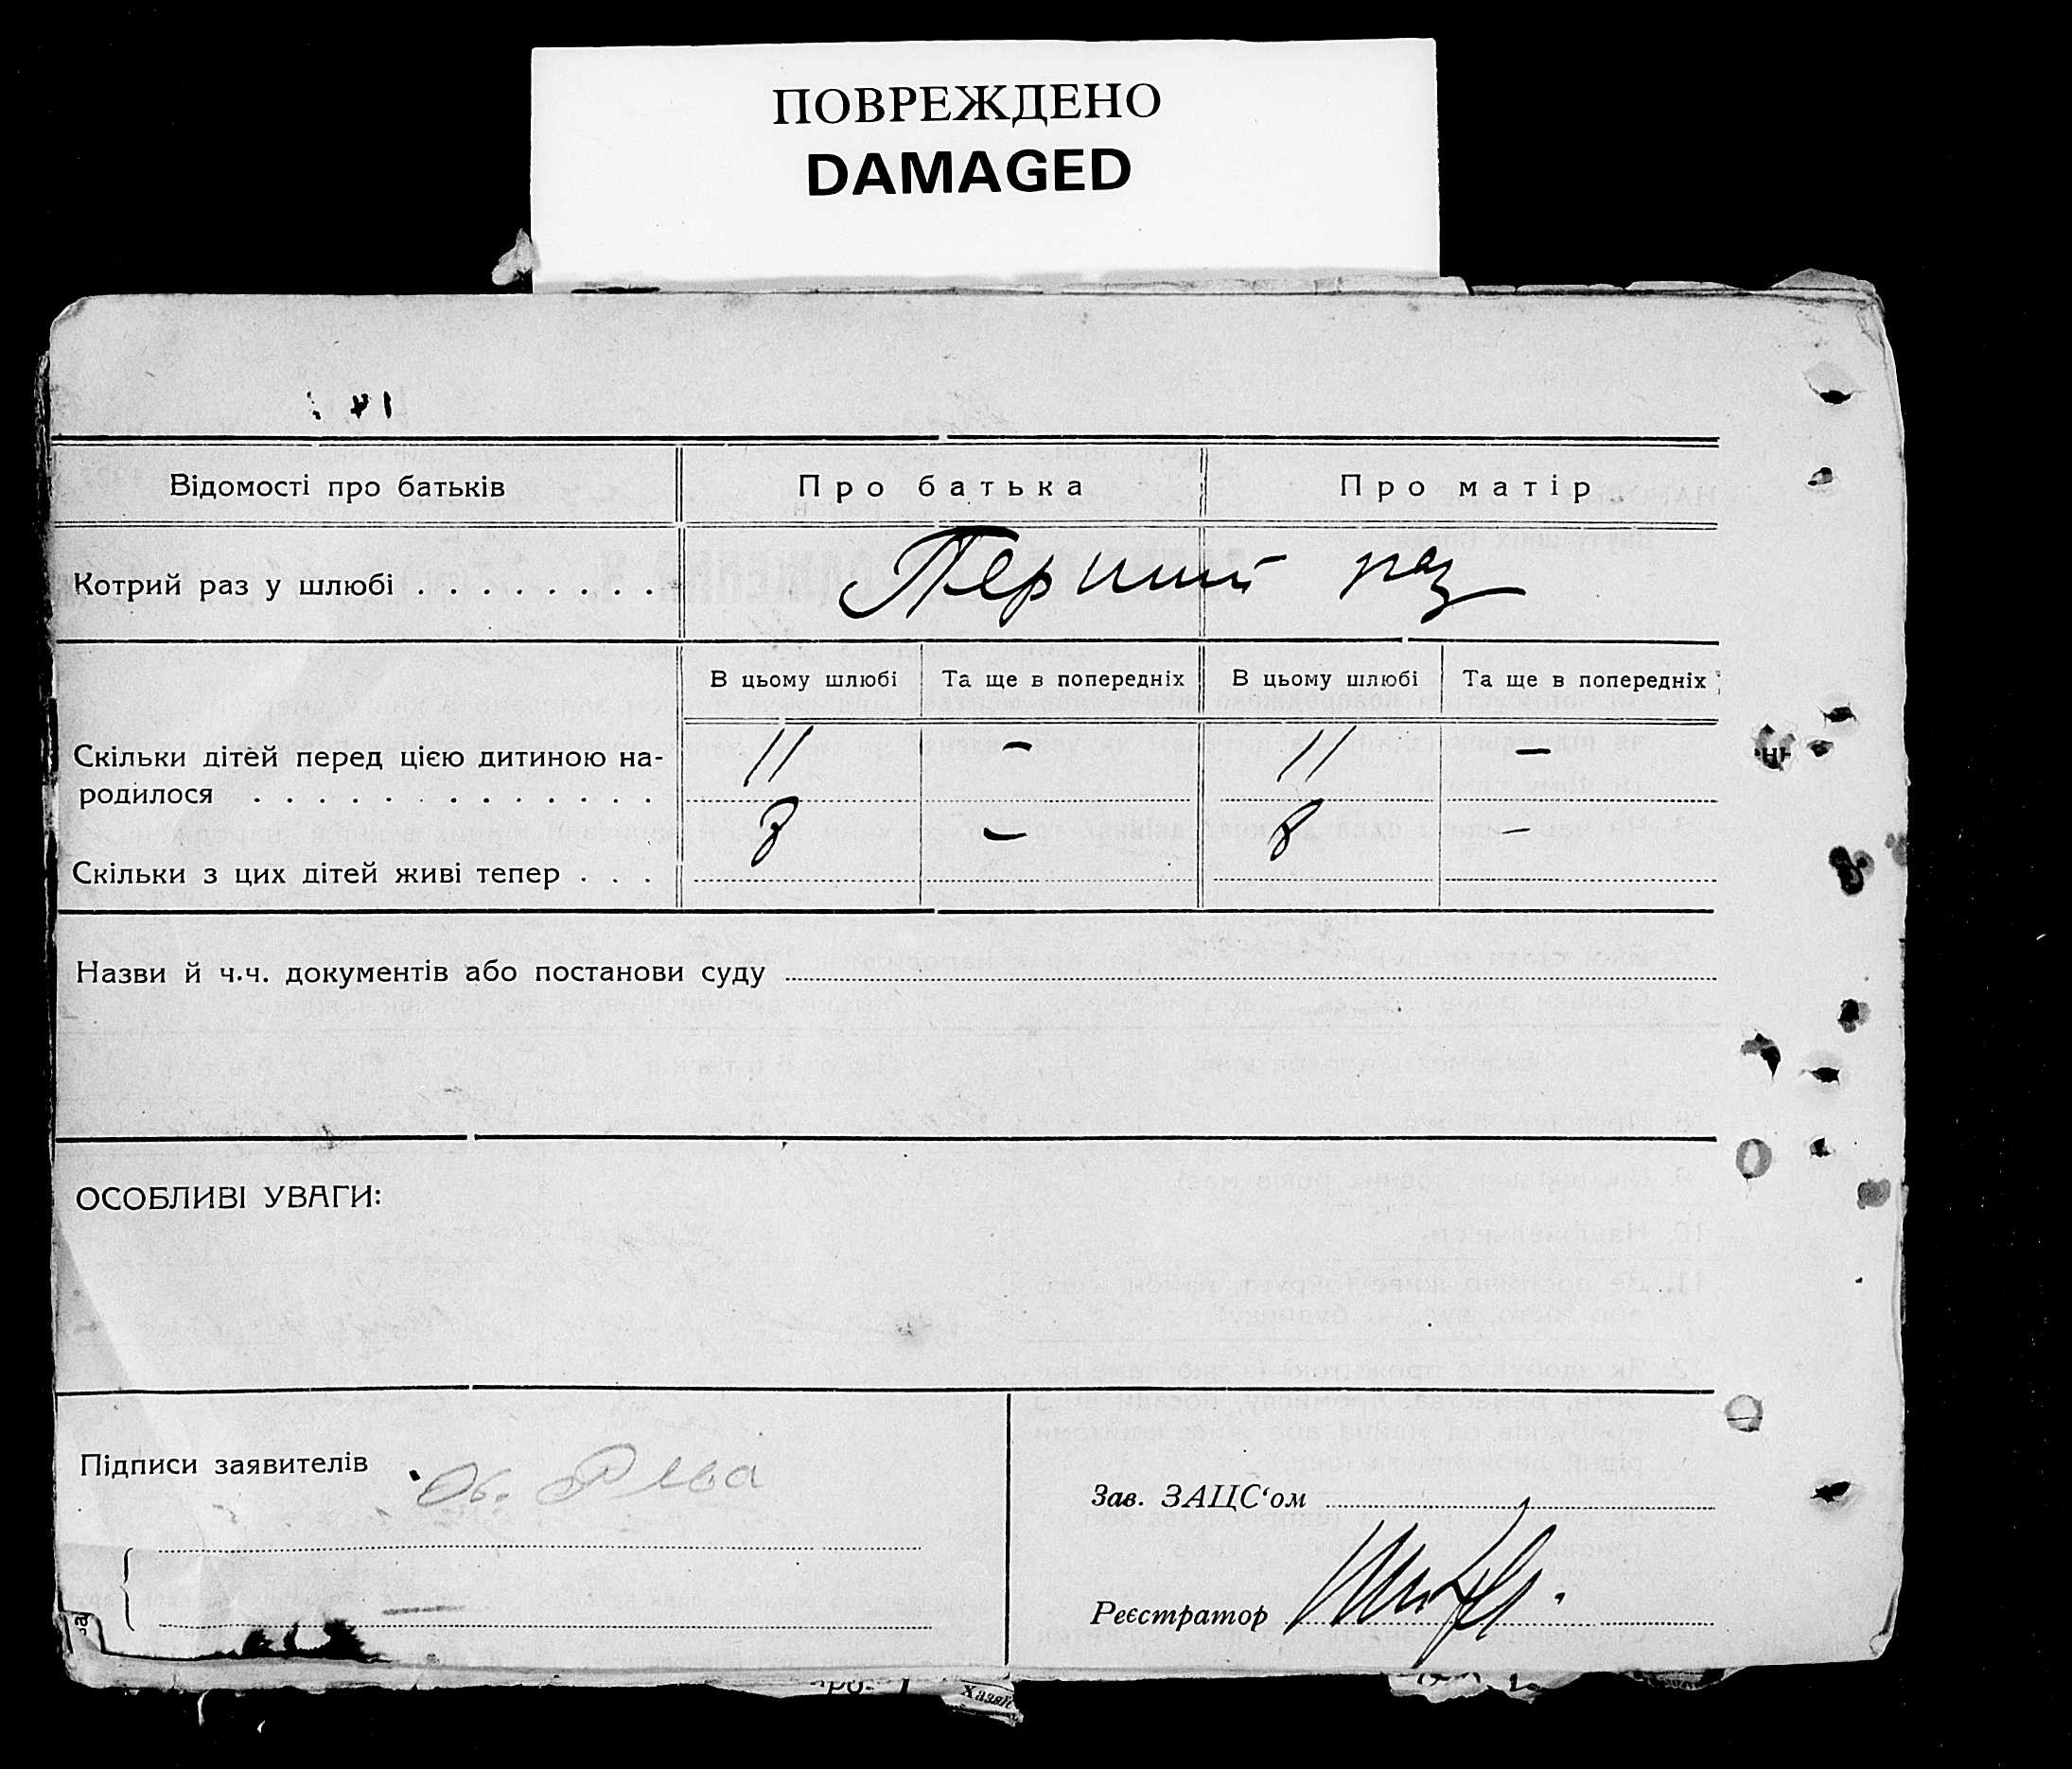 ПОВРЕЖДЕНО
DAMAGED
Відомості про батьків
Про батька
Про матір
Котрий раз у шлюбі . . . . . . . .
Перший раз
В цьому шлюбі
Та ще в попередніх
В цьому шлюбі
Та ще в попередніх
Скільки дітей перед цією дитиною на-
родилося . . . . . . . . . . . . .
11 – 11 –
Скільки з цих дітей живі тепер . . .
8 – 8 –
Назви й ч.ч. документів або постанови суду
ОСОБЛИВІ УВАГИ:
Підписи заявителів
Зав. ЗАЦС‘ом
Реєстратор
Хазяй